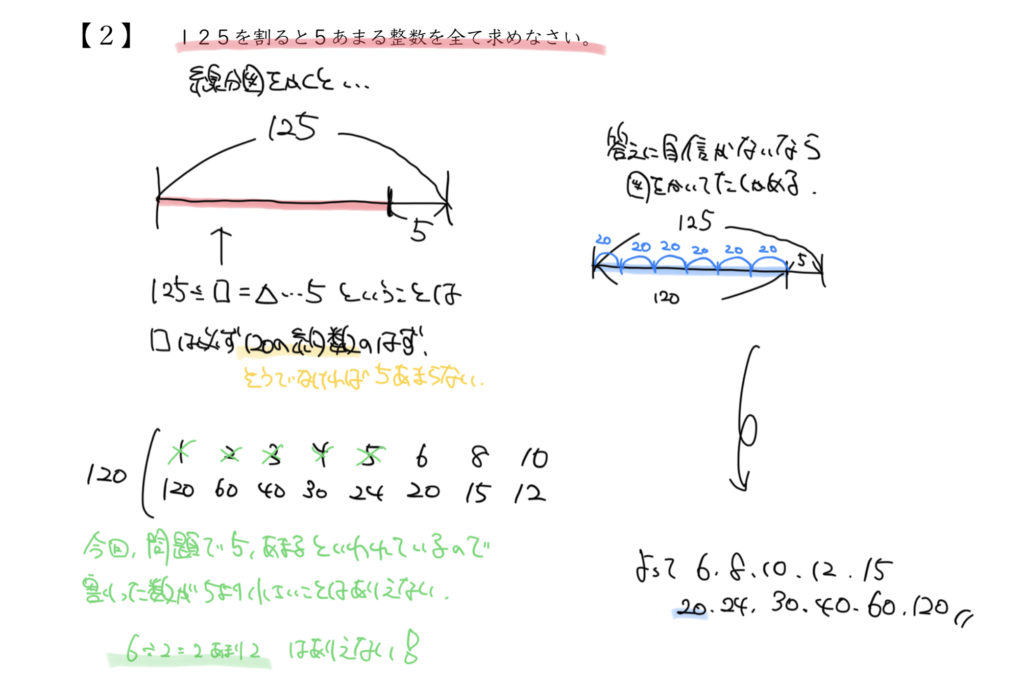 【２】 １２５を割ると５あまる整数を全て求めなさい。
線分図をかくと…
125
5
125÷□=△…5 ということは
□は必ず120の約数のはず.
そうでなければ5あまらない.
120 1 2 3 4 5 6 8 10
120 60 40 30 24 20 15 12
今回,問題で5,あまるといわれているので
割った数が5より小さいことはありえない.
6÷2=2あまり2 はありえない!!
答えに自信がないなら
図をかいてたしかめる.
125
20 20 20 20 20 20 5
120
よって 6.8.10.12.15
20.24.30.40.60.120